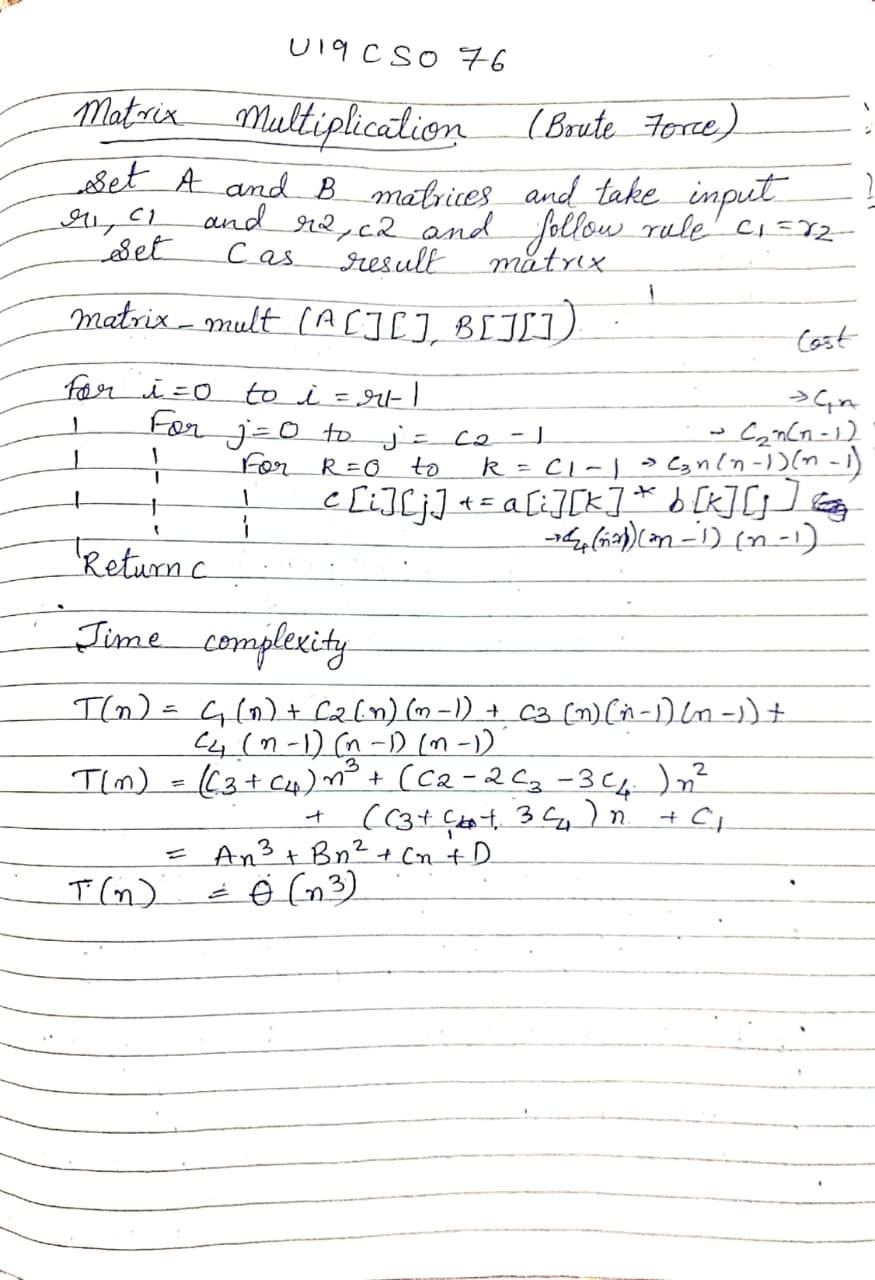 U19CS076
Matrix Multiplication (Brute Force)
Set A and B matrices and take input
r1, c1 and r2, c2 and follow rule c1 = r2
Set C as result matrix
matrix-mult (A[][], B[][])
Cost
For i=0 to i = r1-1 → C1n
For j=0 to j = c2-1 → C2n(n-1)
For k=0 to k = c1-1 → C3n(n-1)(n-1)
c[i][j] += a[i][k] * b[k][j]
→ C4 (n-1)(n-1)(n-1)
Return c
Time complexity
T(n) = C1(n) + C2(n)(n-1) + C3(n)(n-1)(n-1) +
C4(n-1)(n-1)(n-1)
T(n) = (C3+C4)n³ + (C2-2C3-3C4)n²
+ (C3+ 3C4)n + C1
= An³ + Bn² + Cn + D
T(n) = Θ(n³)